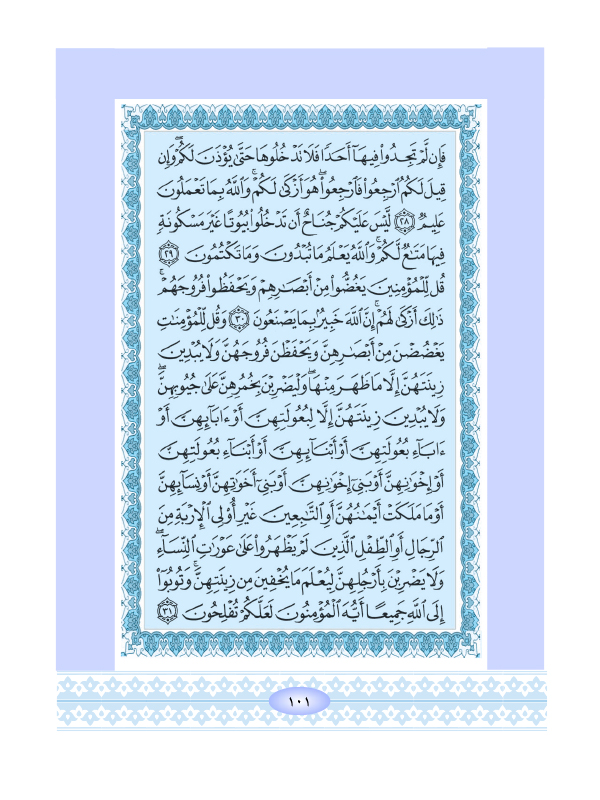 فَإِن لَّمْ تَجِدُوا۟ فِيهَآ أَحَدًا فَلَا تَدْخُلُوهَا حَتَّىٰ يُؤْذَنَ لَكُمْ ۖ وَإِن
قِيلَ لَكُمُ ٱرْجِعُوا۟ فَٱرْجِعُوا۟ ۖ هُوَ أَزْكَىٰ لَكُمْ ۚ وَٱللَّهُ بِمَا تَعْمَلُونَ
عَلِيمٌ ﴿٢٨﴾ لَّيْسَ عَلَيْكُمْ جُنَاحٌ أَن تَدْخُلُوا۟ بُيُوتًا غَيْرَ مَسْكُونَةٍ
فِيهَا مَتَـٰعٌ لَّكُمْ ۚ وَٱللَّهُ يَعْلَمُ مَا تُبْدُونَ وَمَا تَكْتُمُونَ ﴿٢٩﴾
قُل لِّلْمُؤْمِنِينَ يَغُضُّوا۟ مِنْ أَبْصَـٰرِهِمْ وَيَحْفَظُوا۟ فُرُوجَهُمْ ۚ
ذَٰلِكَ أَزْكَىٰ لَهُمْ ۗ إِنَّ ٱللَّهَ خَبِيرٌۢ بِمَا يَصْنَعُونَ ﴿٣٠﴾ وَقُل لِّلْمُؤْمِنَـٰتِ
يَغْضُضْنَ مِنْ أَبْصَـٰرِهِنَّ وَيَحْفَظْنَ فُرُوجَهُنَّ وَلَا يُبْدِينَ
زِينَتَهُنَّ إِلَّا مَا ظَهَرَ مِنْهَا ۖ وَلْيَضْرِبْنَ بِخُمُرِهِنَّ عَلَىٰ جُيُوبِهِنَّ ۖ
وَلَا يُبْدِينَ زِينَتَهُنَّ إِلَّا لِبُعُولَتِهِنَّ أَوْ ءَابَآئِهِنَّ أَوْ
ءَابَآءِ بُعُولَتِهِنَّ أَوْ أَبْنَآئِهِنَّ أَوْ أَبْنَآءِ بُعُولَتِهِنَّ
أَوْ إِخْوَٰنِهِنَّ أَوْ بَنِىٓ إِخْوَٰنِهِنَّ أَوْ بَنِىٓ أَخَوَٰتِهِنَّ أَوْ نِسَآئِهِنَّ
أَوْ مَا مَلَكَتْ أَيْمَـٰنُهُنَّ أَوِ ٱلتَّـٰبِعِينَ غَيْرِ أُو۟لِى ٱلْإِرْبَةِ مِنَ
ٱلرِّجَالِ أَوِ ٱلطِّفْلِ ٱلَّذِينَ لَمْ يَظْهَرُوا۟ عَلَىٰ عَوْرَٰتِ ٱلنِّسَآءِ ۖ
وَلَا يَضْرِبْنَ بِأَرْجُلِهِنَّ لِيُعْلَمَ مَا يُخْفِينَ مِن زِينَتِهِنَّ ۚ وَتُوبُوٓا۟
إِلَى ٱللَّهِ جَمِيعًا أَيُّهَ ٱلْمُؤْمِنُونَ لَعَلَّكُمْ تُفْلِحُونَ ﴿٣١﴾
١٠١